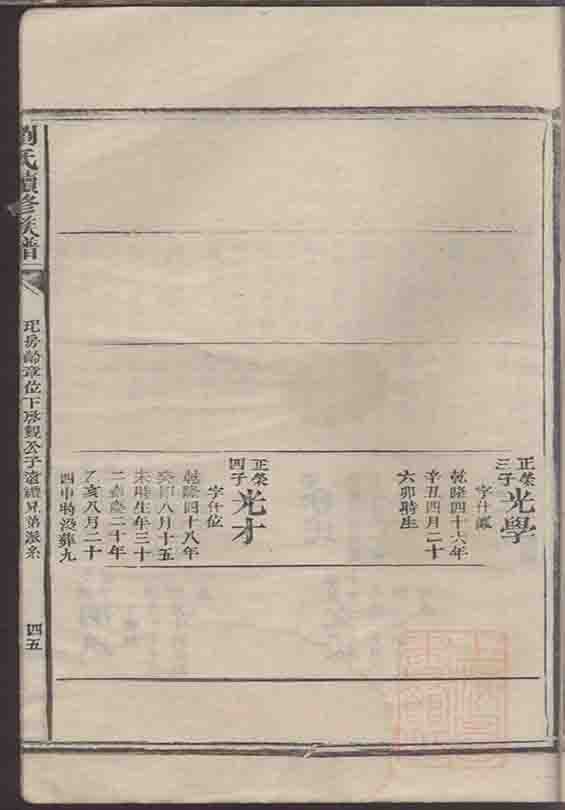 正榮
三子
光學
字仕
乾隆四十六年
辛丑四月二十
六卯時生
正榮
四子
光才
字仕位
乾隆四十八年
癸卯八月十五
未時生年三十
二嘉慶二十年
乙亥八月二十
四申時歿葬九
劉氏續修族譜
房齡章位下房觀公子滄禮兄弟派系
四五